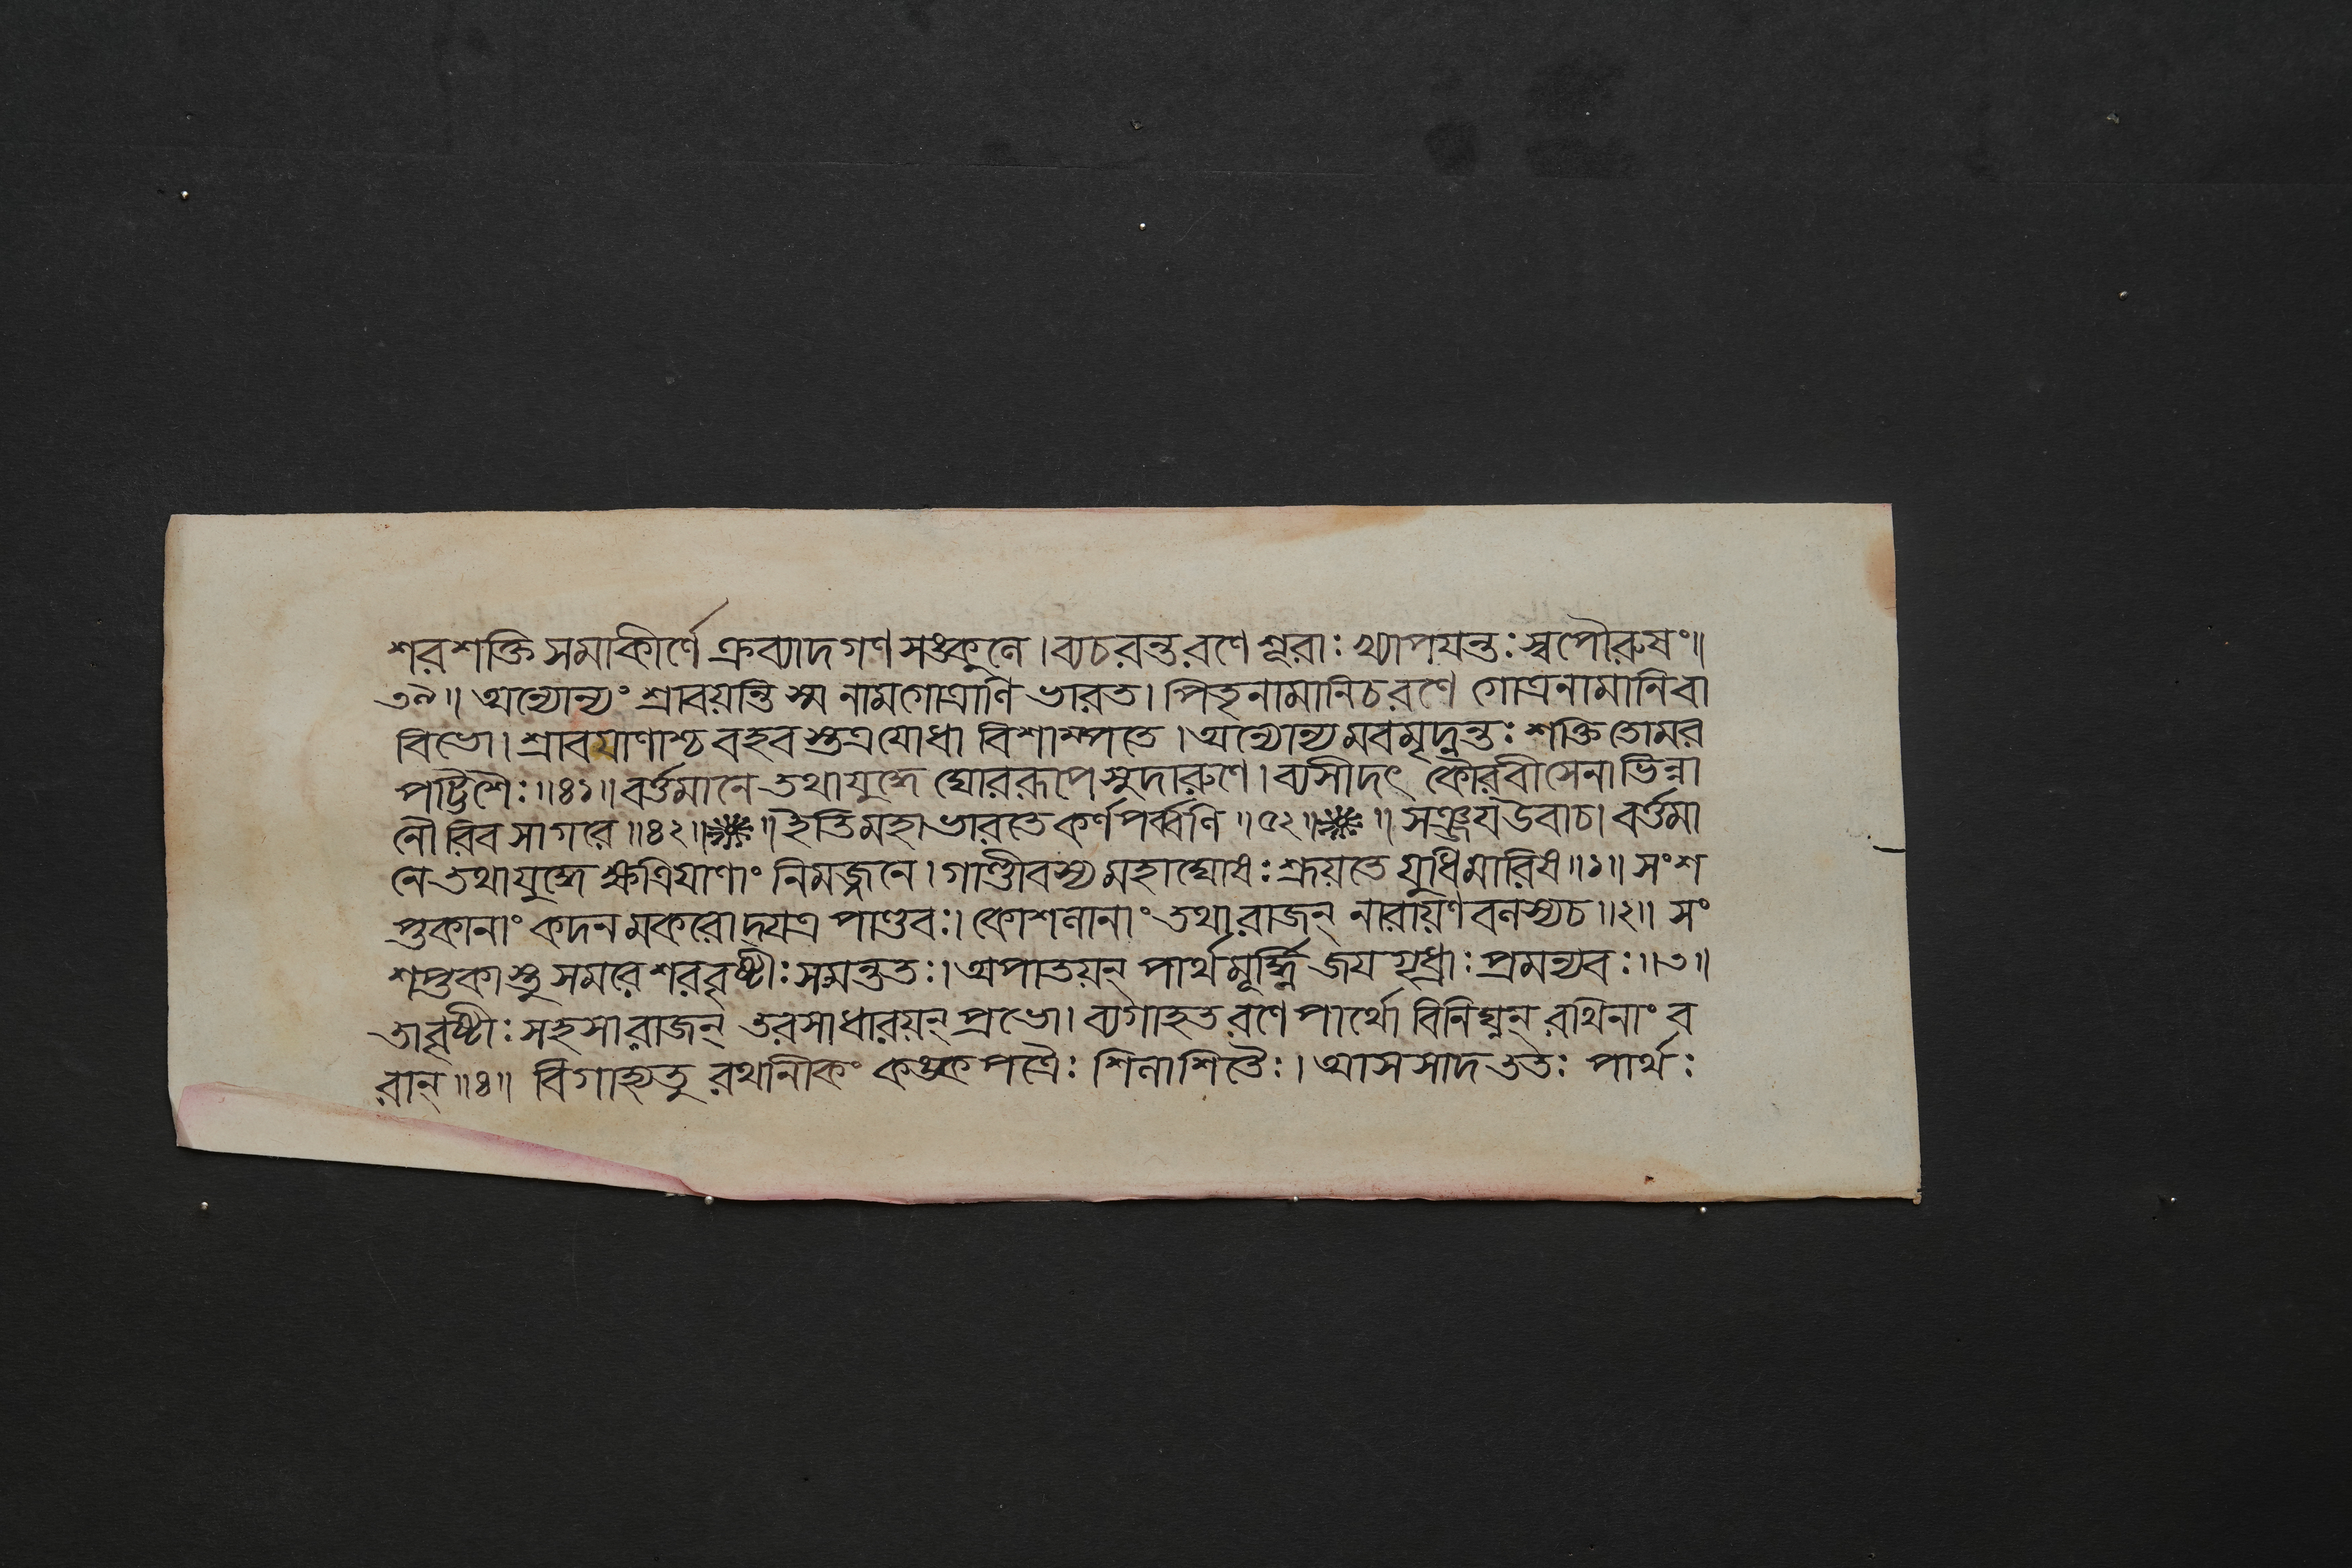 শরশক্তিসমাকীর্ণে ক্রব্যাদগণসঙ্কুলে। ব্যচরন্তরণে শূরাঃ খ্যাপযন্তঃ স্বপৌরুষং॥
৩৯॥ অন্যোন্যং শ্রাবয়ন্তি স্ম নামগোত্রাণি ভারত। পিতৃনামানিচরণে গোত্রনামানিবা
বিভো। শ্রাবযাণাশ্চ বহবস্তত্রযোধা বিশাম্পতে। অন্যোন্যমবমৃদ্নন্তঃ শক্তিতোমর
পট্টিশৈঃ॥৪১॥ বর্ত্তমানে তথাযুদ্ধে ঘোররূপে সুদারুণে। ব্যসীদৎ কৌরবীসেনা ভিন্না
নৌরিবসাগরে॥৪২॥ ॥ ইতিমহাভারতে কর্ণপর্ব্বণি॥৫২॥ ॥ সঞ্জযউবাচ। বর্ত্তমা
নে তথাযুদ্ধে ক্ষত্রিযাণাং নিমজ্জনে। গাণ্ডীবস্য মহাঘোষঃ শ্রূয়তে যুধিমারিষ॥১॥ সংশ
প্তকানাং কদনমকরোদ্যত্র পাণ্ডবঃ। কোশলানাং তথারাজন্ নারায়ণবলস্যচ॥২॥ সং
শপ্তকাস্তু সমরে শরবৃষ্টীঃ সমন্ততঃ। অপাতয়ন্ পার্থমূর্দ্ধ্নি জযগৃধ্রাঃ প্রমন্যবঃ॥৩॥
তাবৃষ্টীঃ সহসারাজন্ তরসাধারয়ন্ প্রভো। ব্যগাহতরণে পার্থো বিনিঘ্নন্ রথিনাং ব
রান্॥৪॥ বিগাহ্যতু রথানীকং কঙ্কপত্রৈঃ শিলাশিতৈঃ। আসসাদ ততঃ পার্থঃ